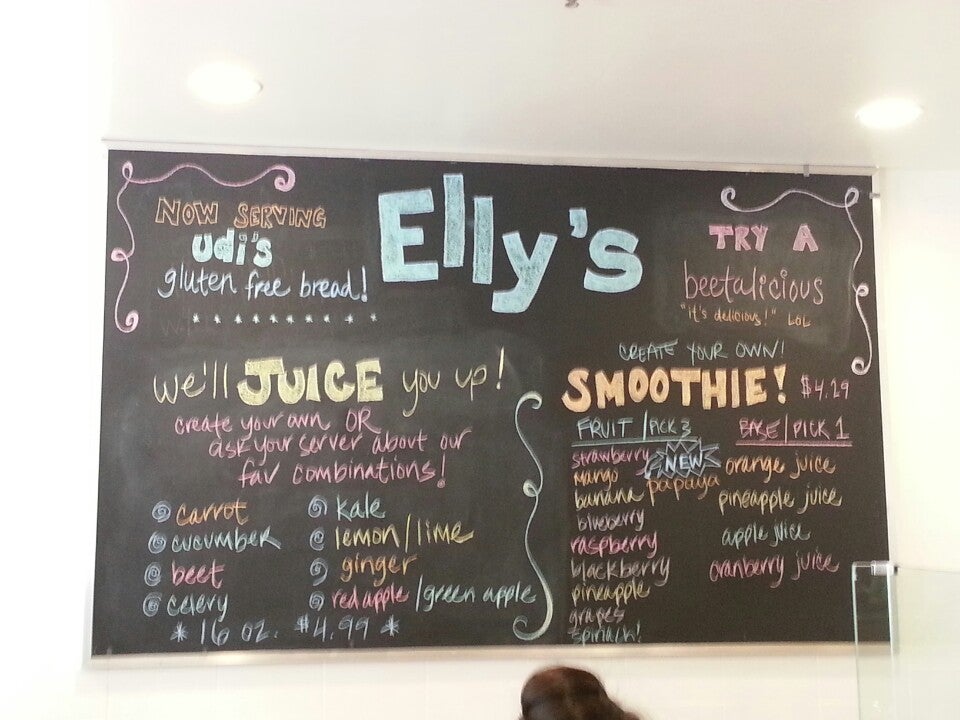 Elly's
NOW SERVING
Udi's
gluten free bread!
* * * * * * * * *
TRY A
beetalicious
"it's delicious!" LOL
we'll JUICE you up!
create your own OR
ask your server about our
fav combinations!
carrot
cucumber
beet
celery
kale
lemon/lime
ginger
red apple/green apple
* 16 oz. $4.99 *
CREATE YOUR OWN!
SMOOTHIE! $4.29
FRUIT/PICK 3
strawberry
mango
banana
blueberry
raspberry
blackberry
pineapple
grapes
spinach!
NEW
papaya
BASE/PICK 1
orange juice
pineapple juice
apple juice
cranberry juice